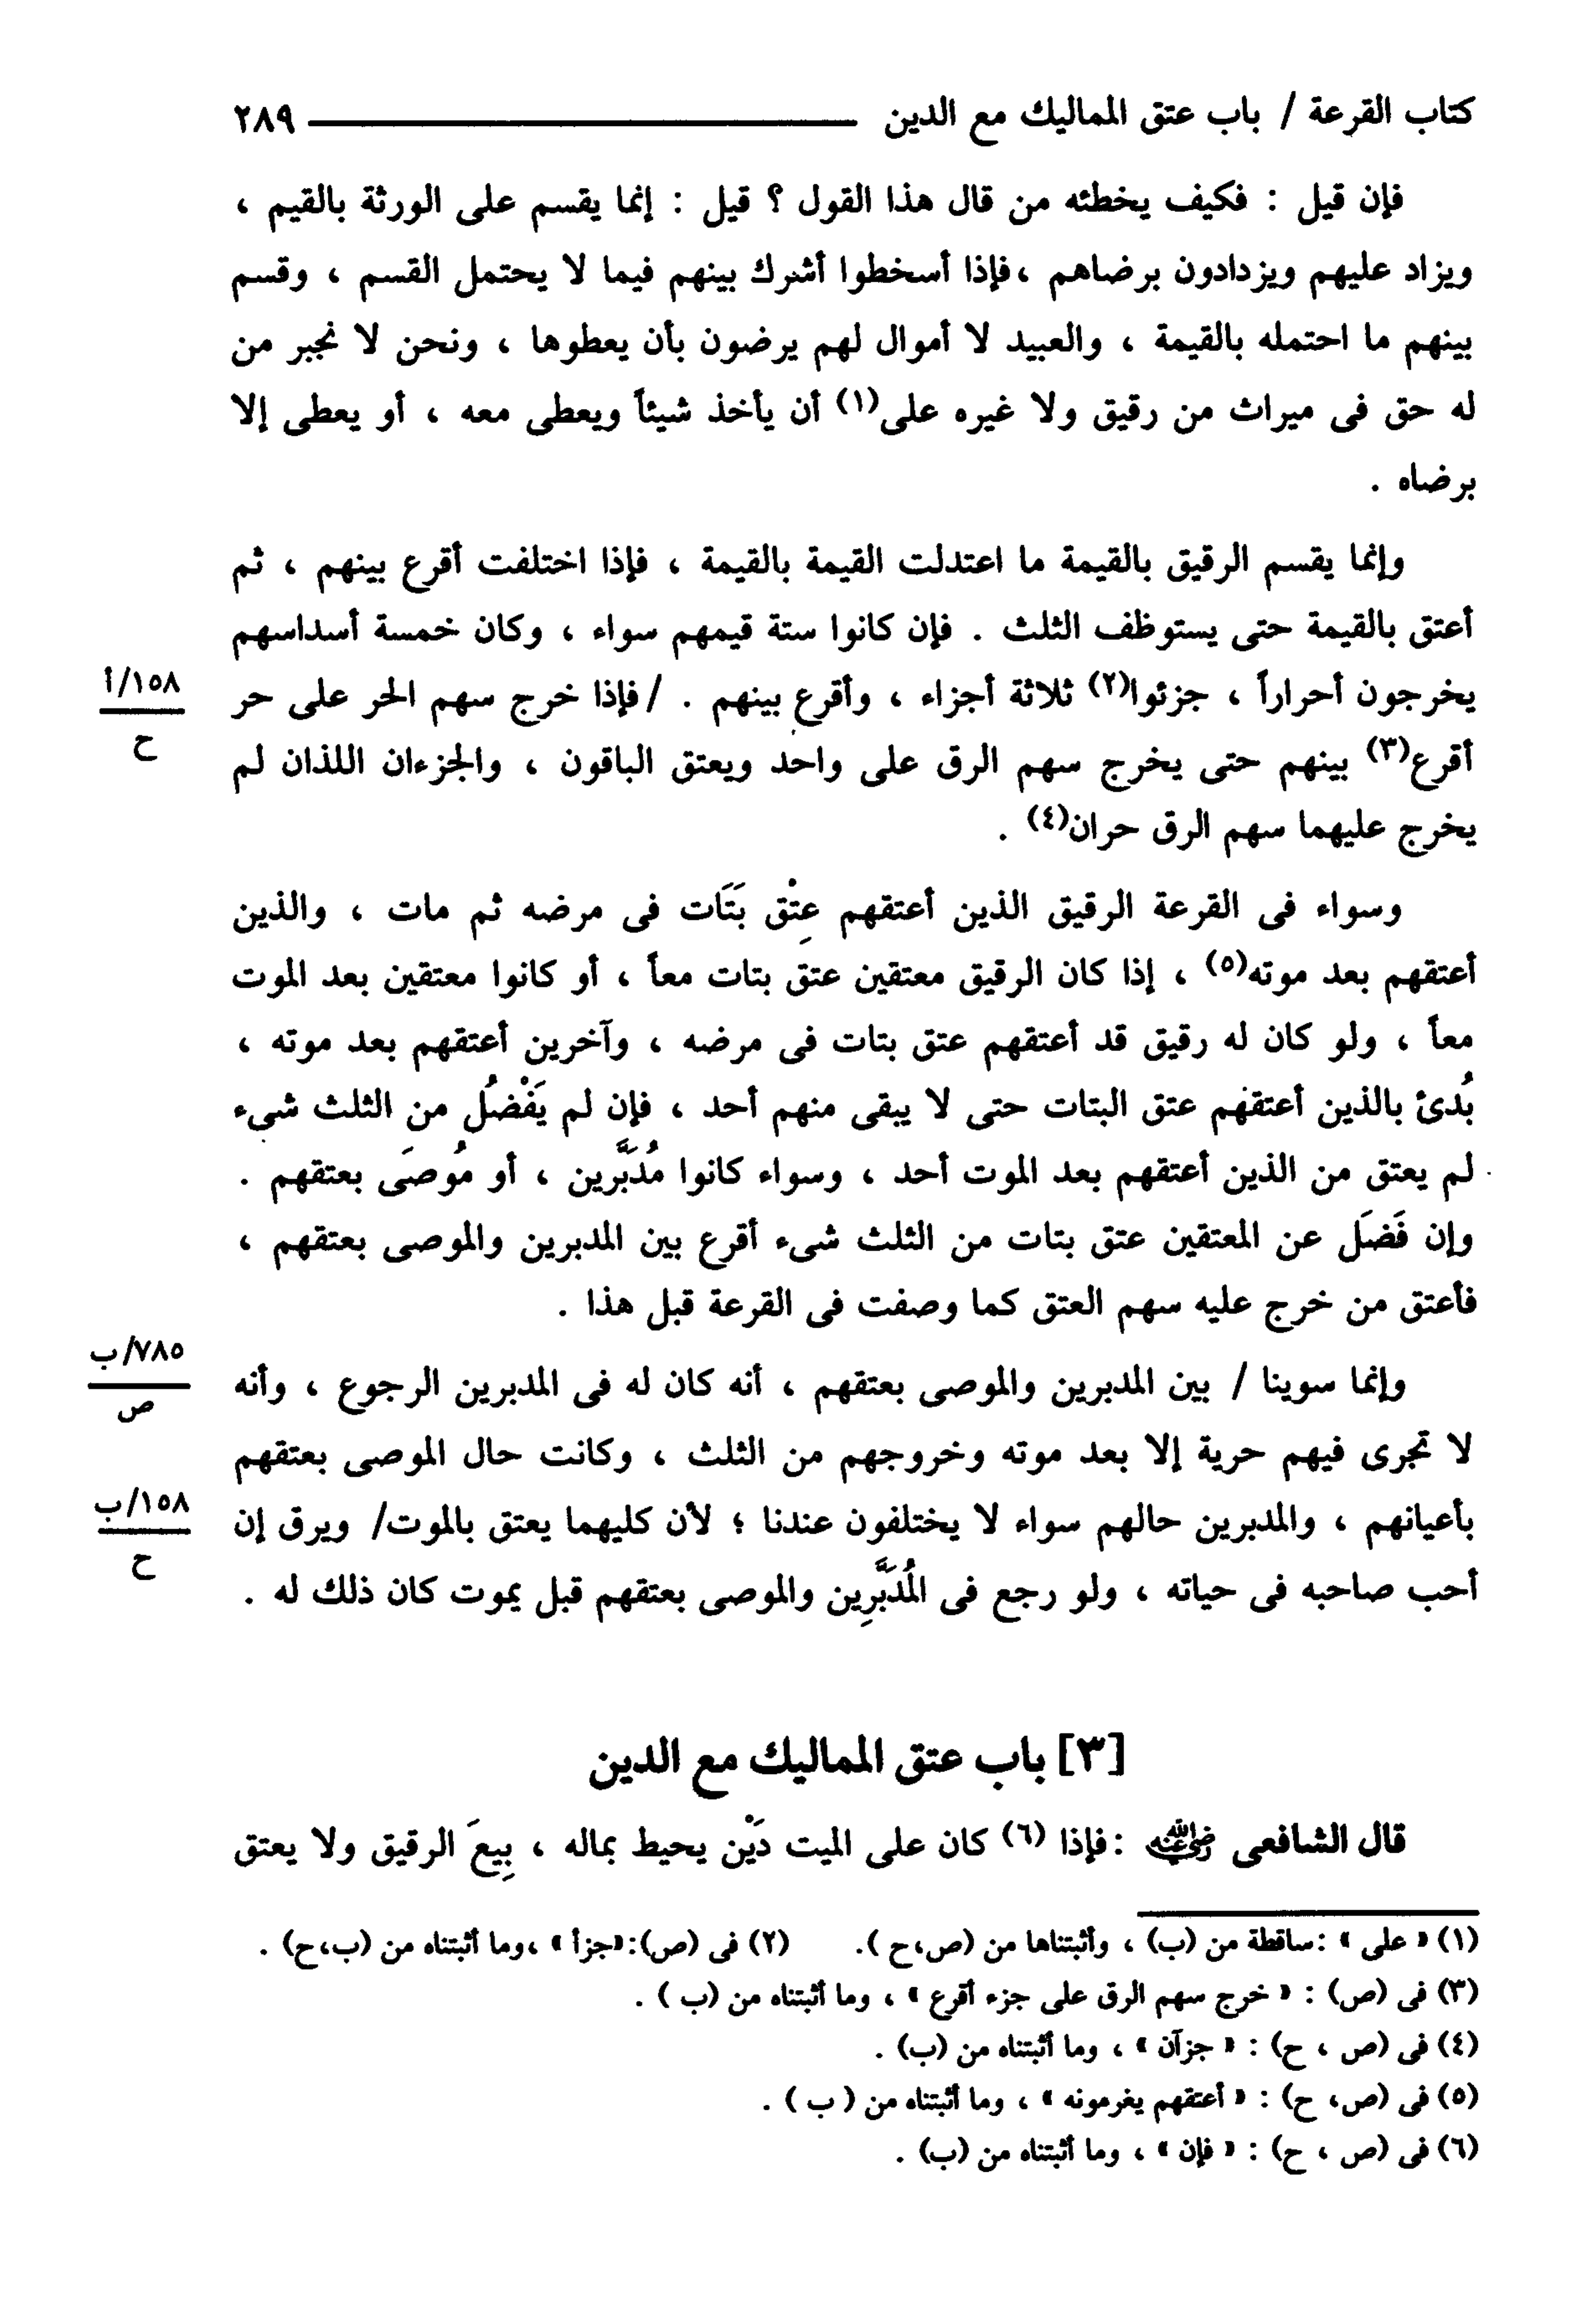 كتاب القرعة / باب عتق المماليك مع الدين ــــــــــــــــــــ ٢٨٩
فإن قيل : فكيف يخطئه من قال هذا القول ؟ قيل : إنما يقسم على الورثة بالقيم ،
ويزاد عليهم ويزدادون برضاهم ،فإذا أسخطوا أشرك بينهم فيما لا يحتمل القسم ، وقسم
بينهم ما احتمله بالقيمة ، والعبيد لا أموال لهم يرضون بأن يعطوها ، ونحن لا نجبر من
له حق فى ميراث من رقيق ولا غيره على(١) أن يأخذ شيئاً ويعطى معه ، أو يعطى إلا
برضاه .
وإنما يقسم الرقيق بالقيمة ما اعتدلت القيمة بالقيمة ، فإذا اختلفت أقرع بينهم ، ثم
أعتق بالقيمة حتى يستوظف الثلث . فإن كانوا ستة قيمهم سواء ، وكان خمسة أسداسهم
يخرجون أحراراً ، جزئوا(٢) ثلاثة أجزاء ، وأقرع بينهم . /فإذا خرج سهم الحر على حر
١٥٨/أ
ح
أقرع(٣) بينهم حتى يخرج سهم الرق على واحد ويعتق الباقون ، والجزءان اللذان لم
يخرج عليهما سهم الرق حران(٤) .
وسواء فى القرعة الرقيق الذين أعتقهم عِتْق بَتَات فى مرضه ثم مات ، والذين
أعتقهم بعد موته(٥) ، إذا كان الرقيق معتقين عتق بتات معاً ، أو كانوا معتقين بعد الموت
معاً ، ولو كان له رقيق قد أعتقهم عتق بتات فى مرضه ، وآخرين أعتقهم بعد موته ،
بُدئ بالذين أعتقهم عتق البتات حتى لا يبقى منهم أحد ، فإن لم يَفْضُل من الثلث شىء
لم يعتق من الذين أعتقهم بعد الموت أحد ، وسواء كانوا مُدَبَّرين ، أو مُوصَى بعتقهم .
وإن فَضَل عن المعتقين عتق بتات من الثلث شىء أقرع بين المدبرين والموصى بعتقهم ،
فأعتق من خرج عليه سهم العتق كما وصفت فى القرعة قبل هذا .
وإنما سوينا / بين المدبرين والموصى بعتقهم ، أنه كان له فى المدبرين الرجوع ، وأنه
٧٨٥/ب
ص
لا تجرى فيهم حرية إلا بعد موته وخروجهم من الثلث ، وكانت حال الموصى بعتقهم
بأعيانهم ، والمدبرين حالهم سواء لا يختلفون عندنا ؛ لأن كليهما يعتق بالموت/ ويرق إن
١٥٨/ب
ح
أحب صاحبه فى حياته ، ولو رجع فى المُدَبَّرِين والموصى بعتقهم قبل يموت كان ذلك له .
[٣] باب عتق المماليك مع الدين
قال الشافعى رضي الله عنه : فإذا (٦) كان على الميت دَيْن يحيط بماله ، بِيعَ الرقيق ولا يعتق
(١) « على » :ساقطة من (ب) ، وأثبتناها من (ص،ح ). (٢) فى (ص):«جزأ » ،وما أثبتناه من (ب،ح) .
(٣) فى (ص) : « خرج سهم الرق على جزء أقرع » ، وما أثبتناه من (ب ) .
(٤) فى (ص ، ح) : « جزآن » ، وما أثبتناه من (ب) .
(٥) فى (ص، ح) : « أعتقهم يغرمونه » ، وما أثبتناه من ( ب ) .
(٦) فى (ص ، ح) : « فإن » ، وما أثبتناه من (ب) .